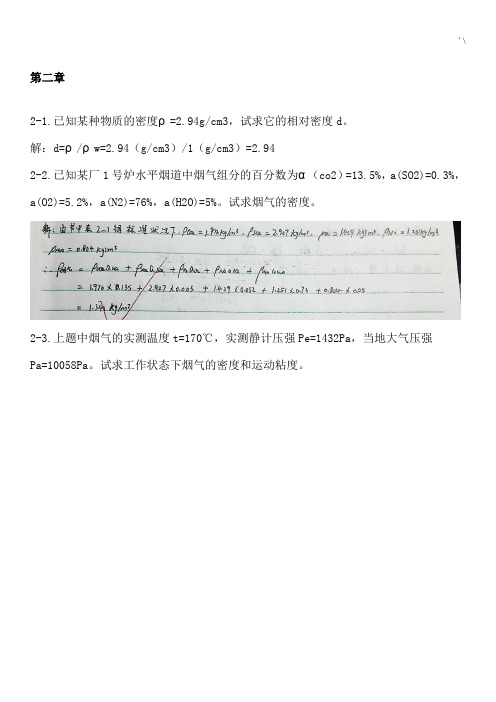 第二章
2-1.已知某种物质的密度ρ=2.94g/cm3,试求它的相对密度d。
解:d=ρ/ρw=2.94(g/cm3)/1(g/cm3)=2.94
2-2.已知某厂1号炉水平烟道中烟气组分的百分数为α(co2)=13.5%,a(SO2)=0.3%,
a(O2)=5.2%,a(N2)=76%,a(H2O)=5%。试求烟气的密度。
解:由书中表2-1得标准状况下,ρco2=1.976kg/m³,ρso2=2.927kg/m³,ρo2=1.429kg/m³,ρN2=1.251kg/m³
ρH2O=0.804kg/m³
= 1.976×0.135 + 2.927×0.003 + 1.429×0.052 + 1.251×0.76 + 0.804×0.05
= 1.34 kg/m³
2-3.上题中烟气的实测温度t=170℃,实测静计压强Pe=1432Pa,当地大气压强
Pa=10058Pa。试求工作状态下烟气的密度和运动粘度。